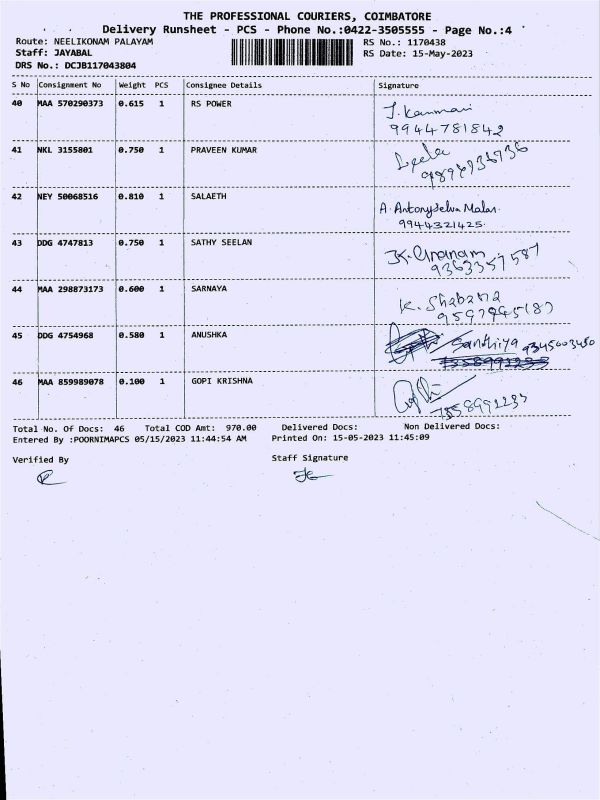 THE PROFESSIONAL COURIERS, COIMBATORE
Delivery Runsheet - PCS - Phone No.:0422-3505555 - Page No.:4
Route: NEELIKONAM PALAYAM
RS No.: 1170438
Staff: JAYABAL
RS Date: 15-May-2023
DRS No.: DCJB117043804
S No Consignment No Weight PCS Consignee Details Signature
40 MAA 570290373 0.615 1 RS POWER J. Kanmani
9944781842
41 NKL 3155801 0.750 1 PRAVEEN KUMAR Leela
42 NEY 50068516 0.810 1 SALAETH A. Antony Selva Malar.
9944321425.
43 DDG 4747813 0.750 1 SATHY SEELAN K. Gnanam
9363357587
44 MAA 298873173 0.600 1 SARNAYA K. Shabana
45 DDG 4754968 0.580 1 ANUSHKA Sandhiya 9345003450
46 MAA 859989078 0.100 1 GOPI KRISHNA
7558991233
Total No. Of Docs: 46 Total COD Amt: 970.00 Delivered Docs: Non Delivered Docs:
Entered By :POORNIMAPCS 05/15/2023 11:44:54 AM Printed On: 15-05-2023 11:45:09
Verified By Staff Signature